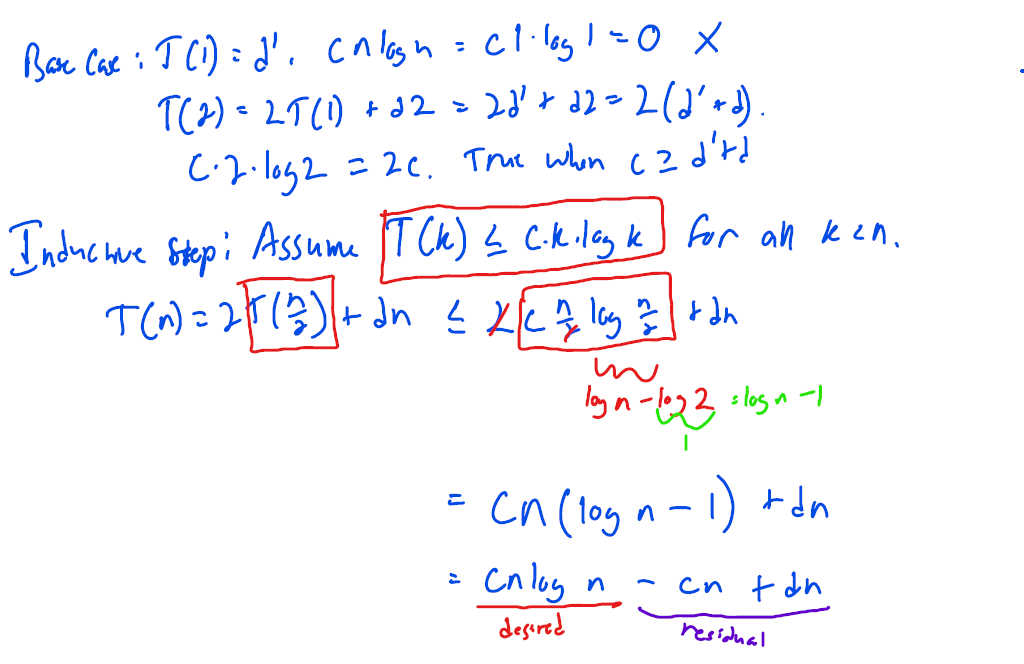 Base Case : T(1) = d'. cn log n = c 1 · log 1 = 0 X
T(2) = 2T(1) + d2 = 2d' + d2 = 2(d' + d).
C·2·log 2 = 2c. True when c ≥ d'+d
Inductive Step: Assume T(k) ≤ C·k·log k for all k < n.
T(n) = 2T(n/2) + dn ≤ 2 c n/2 log n/2 + dn
log n - log 2 = log n - 1
1
= Cn(log n - 1) + dn
= Cn log n - cn + dn
desired residual